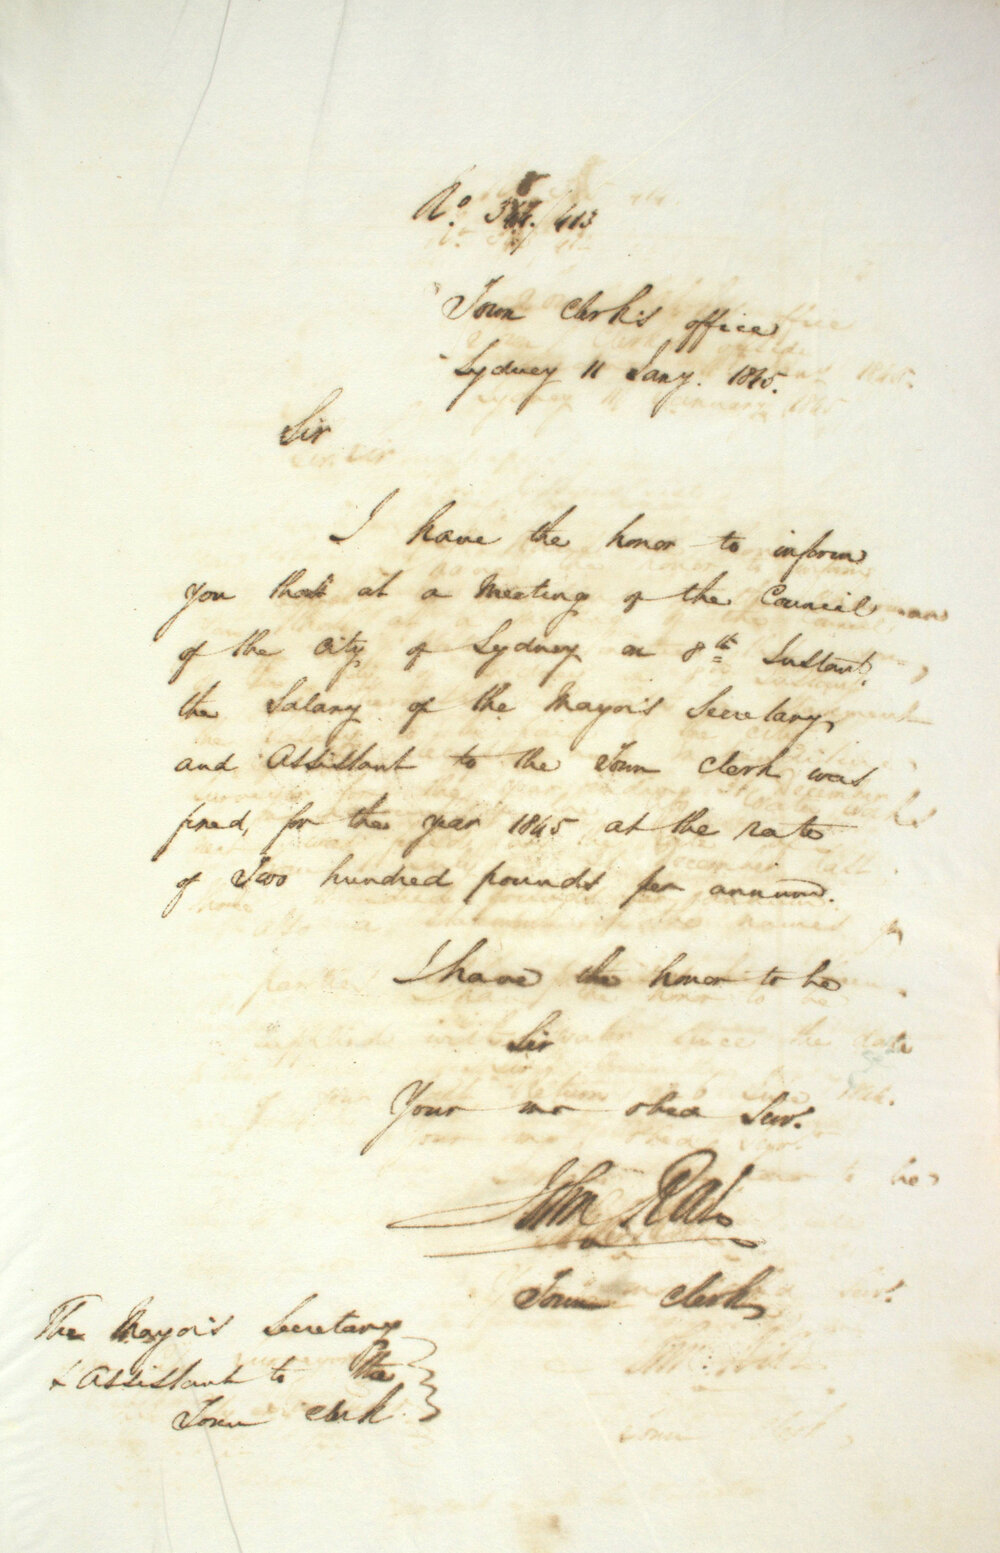 No. 413
Town Clerk's office
Sydney 11 Jany. 1845.
Sir
I have the honor to inform
you that at a Meeting of the Council
of the City of Sydney on 8th Instant.
the Salary of the Mayor's Secretary
and Assistant to the Town Clerk was
fixed, for the year 1845 at the rate
of Two hundred pounds per annum.
I have the honor to be
Sir
Your mo obed Serv.
John Rae
Town Clerk
The Mayor's Secretary
& Assistant to the
Town Clerk